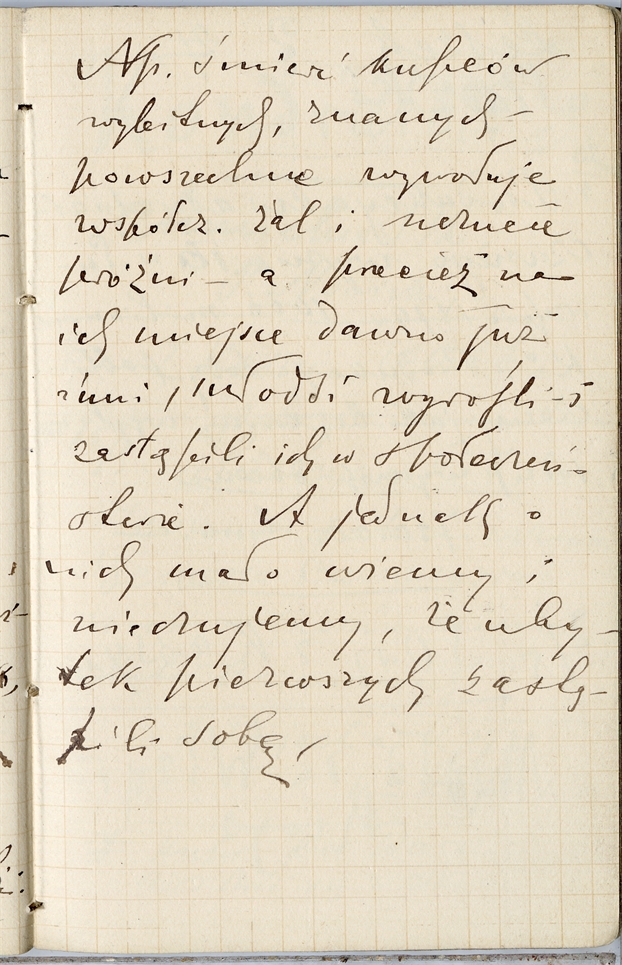 Np. śmierć kupców
wybitnych, znanych
powszechnie wywołuje
współcz. żal i
próżni – a przecież na
ich miejsce dawno już
inni, młodsi wyrośli i
zastąpili ich w społeczeń-
stwie. A jednak o
nich mało wiemy i
nie czujemy, że uby-
tek pierwszych zastą-
pili sobą,